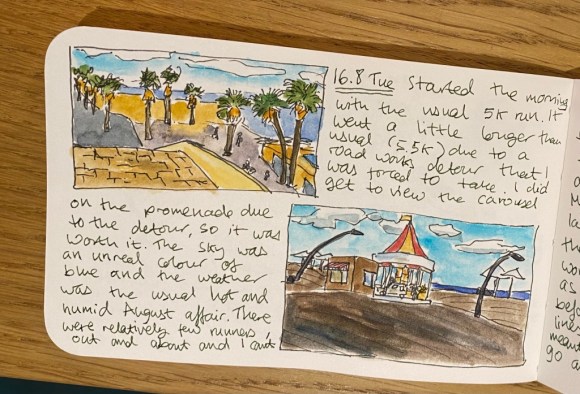 16.8 Tue started the morning
with the usual 5K run. It
went a little longer than
usual (5.5K) due to a
road works detour that I
was forced to take. I did
get to view the carousel
on the promenade due
to the detour, so it was
worth it. The sky was
an unreal colour of
blue and the weather
was the usual hot and
humid August affair. There
were relatively few runners
out and about and I can't
as
line
meant
go a